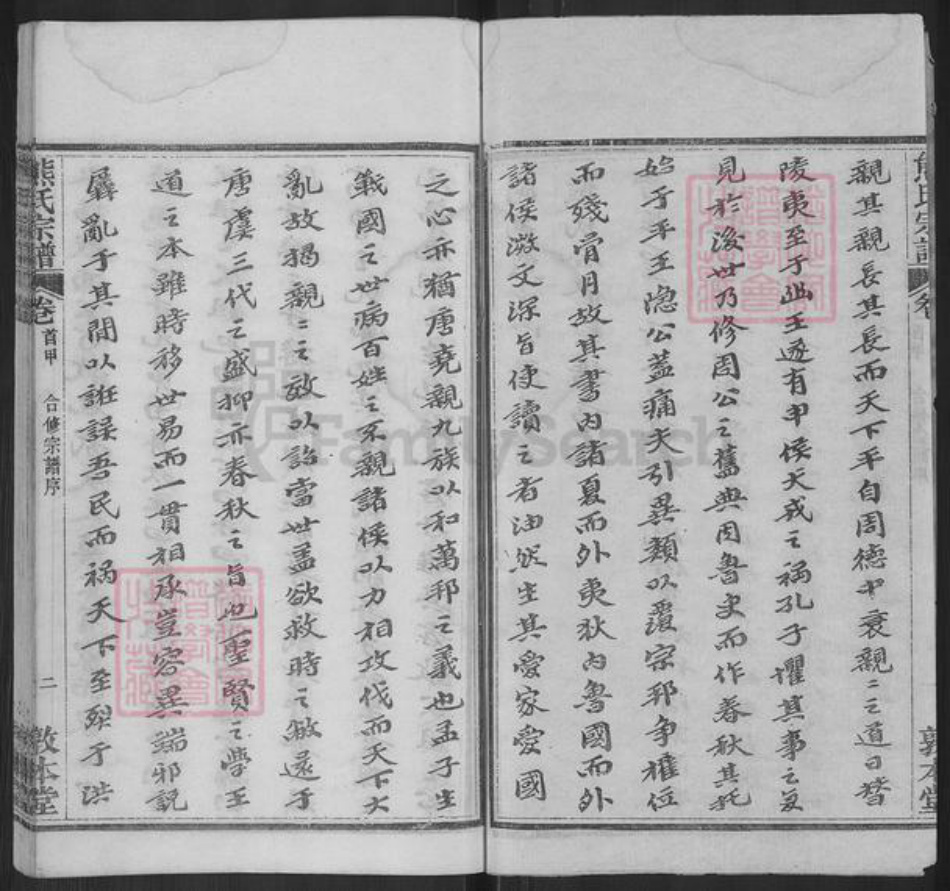 親其親長其長而天下平自周德中衰親〻之道日替
陵夷至于幽王遂有申侯犬戎之禍孔子懼其事之復
見於後世乃修周公之舊典因魯史而作春秋其託
始于平王隱公蓋痛夫引異類以覆宗邦爭權位
而殘骨月故其書內諸夏而外夷狄內魯國而外
諸侯微文深旨使讀之者油然生其愛家愛國
之心亦猶唐堯親九族以和萬邦之義也孟子生
戰國之世病百姓之不親諸侯以力相攻伐而天下大
亂故揭親〻之敎以詔當世盖欲救時之敝還于
唐虞三代之盛抑亦春秋之旨也聖賢之學王
道之本雖時移世易而一貫相承豈容異端邪說
羼亂于其間以誑誤吾民而禍天下至烈于洪
熊氏宗譜
卷首甲
合修宗譜序
二
敦本堂
熊氏宗譜
卷
敦本堂
FamilySearch